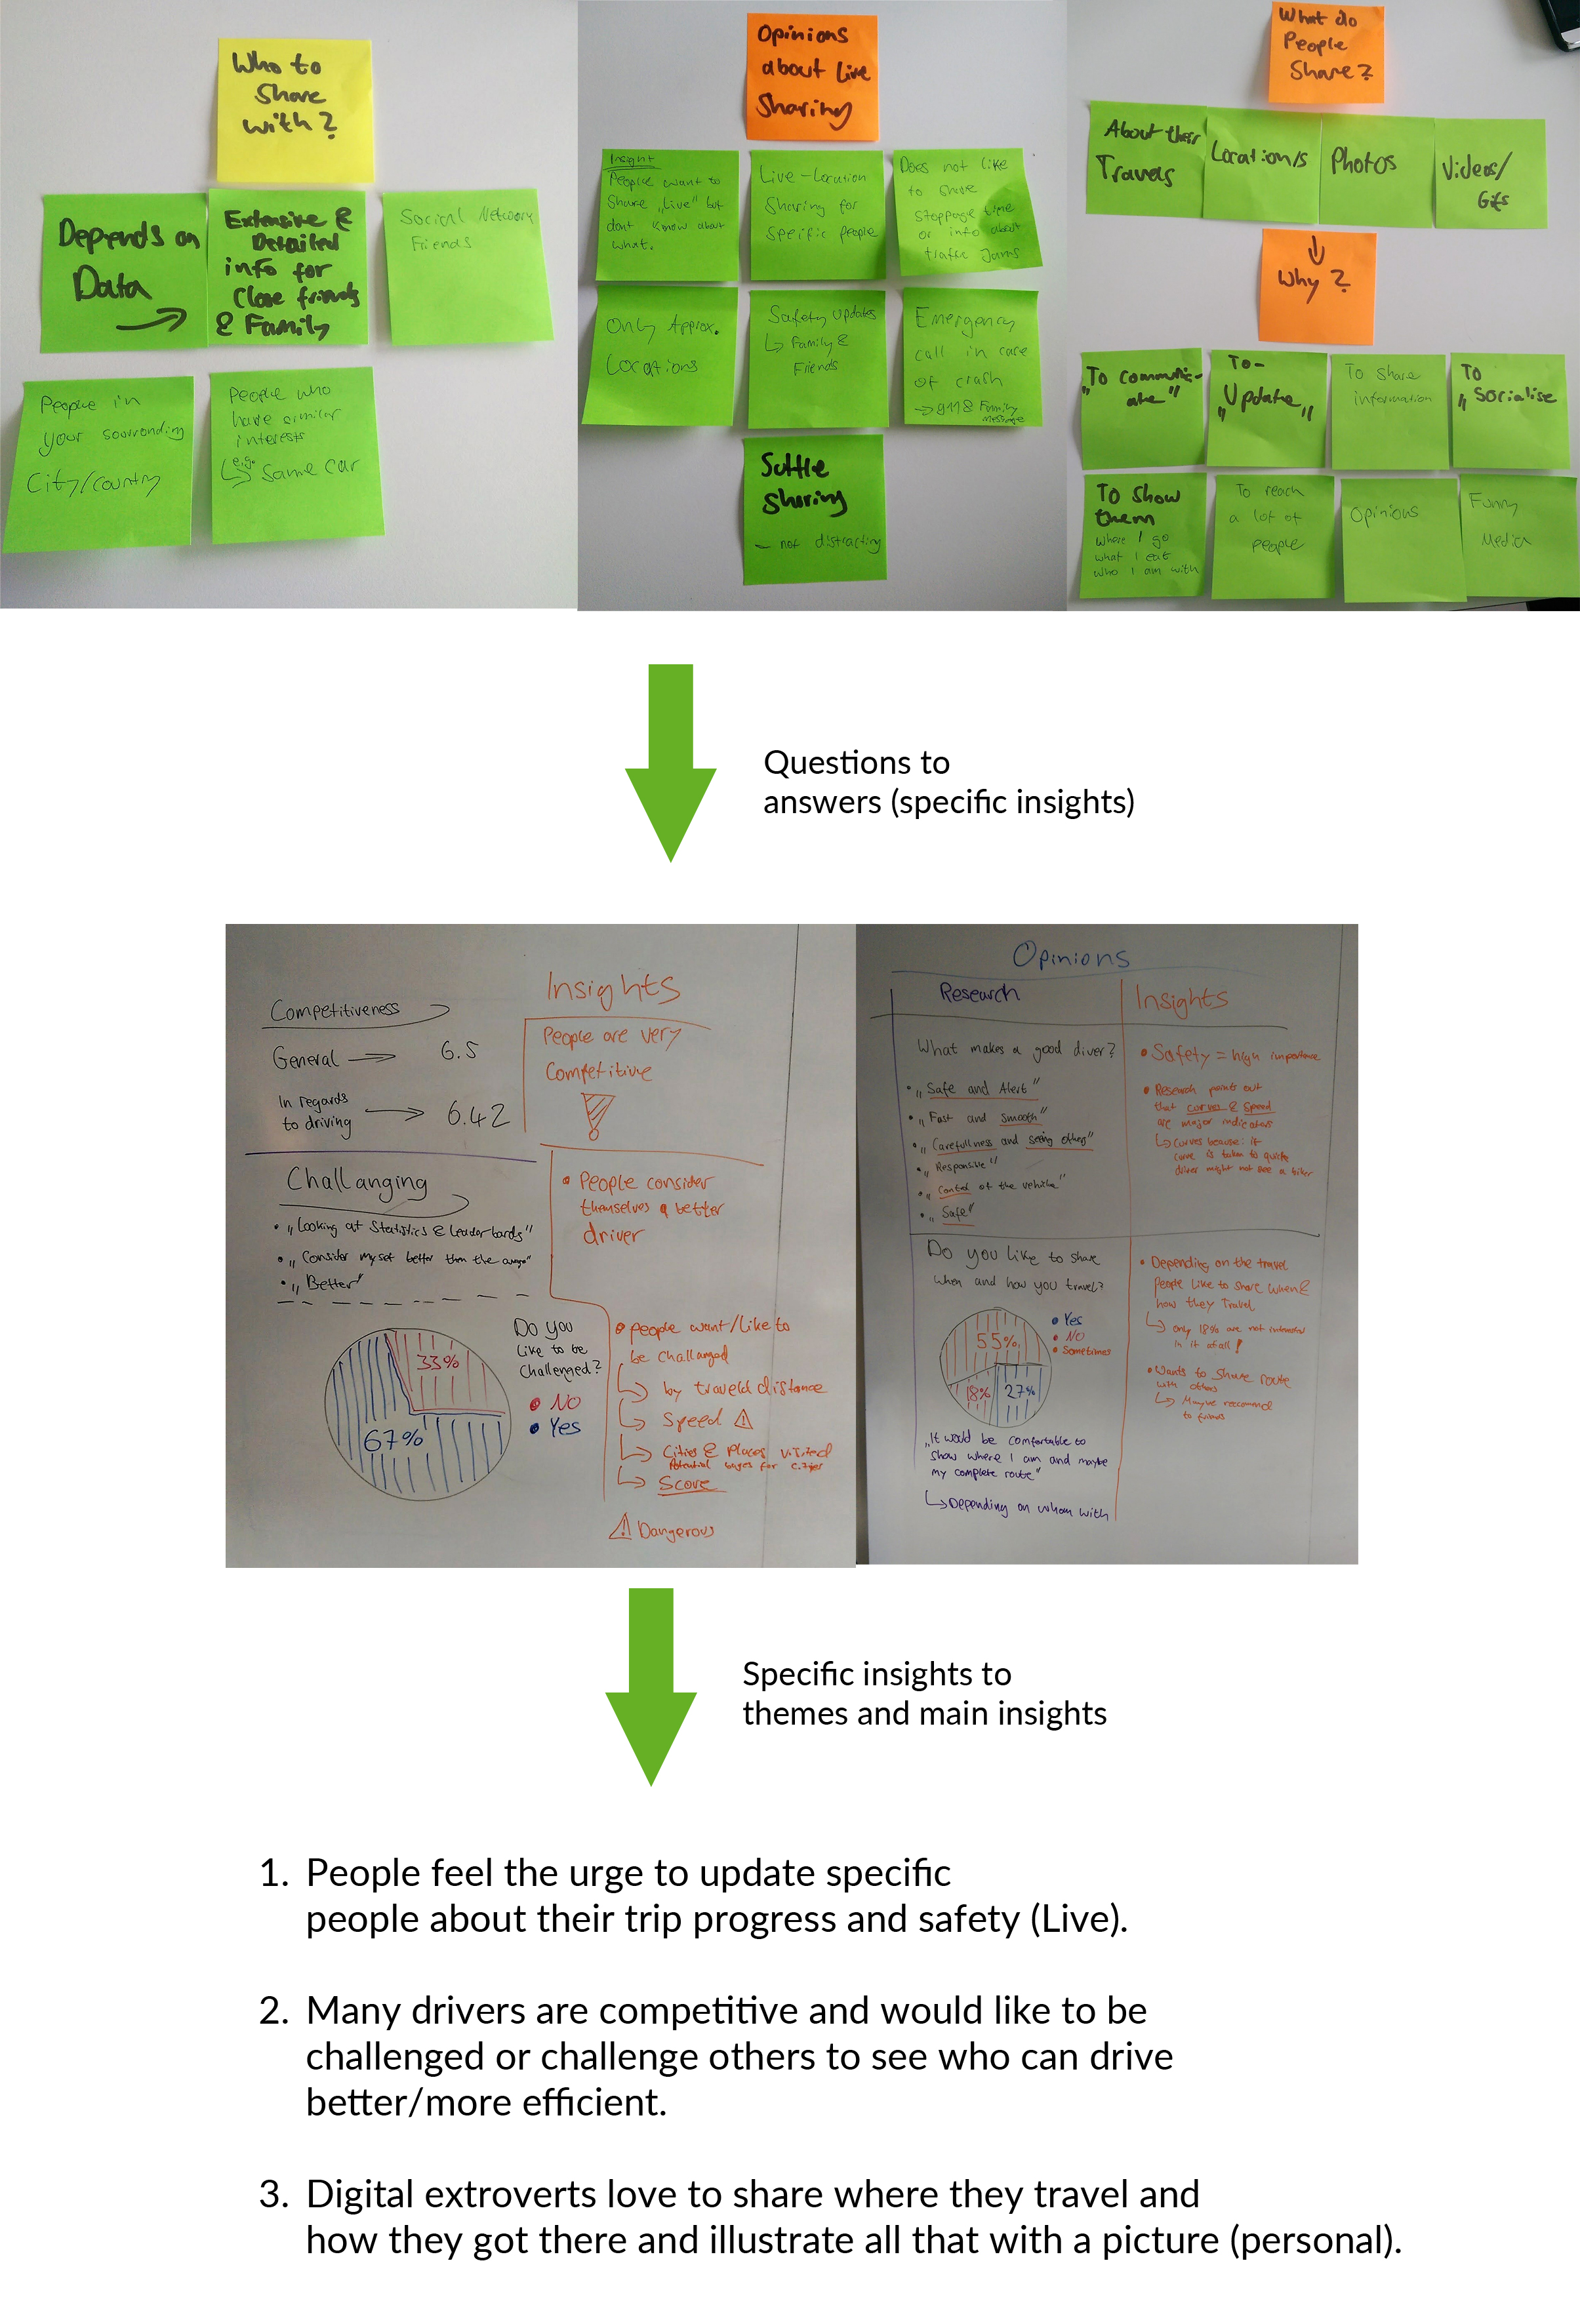 Who to
Share
with?
Depends on
Data
Extensive &
Detailed
info for
Close friends
& Family
Social Network
Friends
People in
your sourronding
City/country
People who
have similar
interests
e.g.
Same car
Opinions
about Live
Sharing
Insight
People want to
Share „Live" but
dont know about
what.
Live-Location
Sharing for
specific people
Does not like
to share
stoppage time
or info about
traffic Jams
Only Approx.
Locations
Safety Updates
Family &
Friends
Emergency
call in care
of crash
→ 911 & Family
Message
Suttle
Sharing
– not distracting
What do
People
Share?
About their
Travels
Location/s
Photos
Videos/
Gifs
Why?
To „Communic-
ate"
To-
„Update"
To share
information
To
„Socialise
To show
them
where I go
what I eat
who I am with
To reach
a lot of
people
Opinions
Funny
Media
Questions to
answers (specific insights)
Competitiveness
General → 6.5
In regards
to driving → 6.42
Insights
People are very
Competitive
!
Challanging
• „Looking at Statistics & Leaderbords"
• „Consider myself better then the average"
• „Better"
• People consider
themselves a better
driver
33%
67%
Do you
like to be
Challenged?
• No
• Yes
• people want/like to
be challanged
by traveld distance
Speed
Cities & Places visited
Potential bages for cities
Score
Dangerous
Opinions
Research
Insights
What makes a good diver?
• „Safe and Alert"
• „Fast and smooth"
• „Carefullness and seeing others"
• „Responsible"
• „Control of the vehicle"
• „Safe"
• Safety = high importance
• Research points out
that curves & speed
are major indicators
Curves because: if
curve is taken to quick
driver might not see a biker
Do you like to share
when and how you travel?
55%
18%
27%
• Yes
• No
• Sometimes
„It would be comfortable to
show where I am and maybe
my complete route"
Depending on whom with
• Depending on the travel
people like to share when &
how they Travel
only 18% are not interested
in it at all!
• Wants to share route
with others
Maybe reccomend
to friends
Specific insights to
themes and main insights
1. People feel the urge to update specific
people about their trip progress and safety (Live).
2. Many drivers are competitive and would like to be
challenged or challenge others to see who can drive
better/more efficient.
3. Digital extroverts love to share where they travel and
how they got there and illustrate all that with a picture (personal).